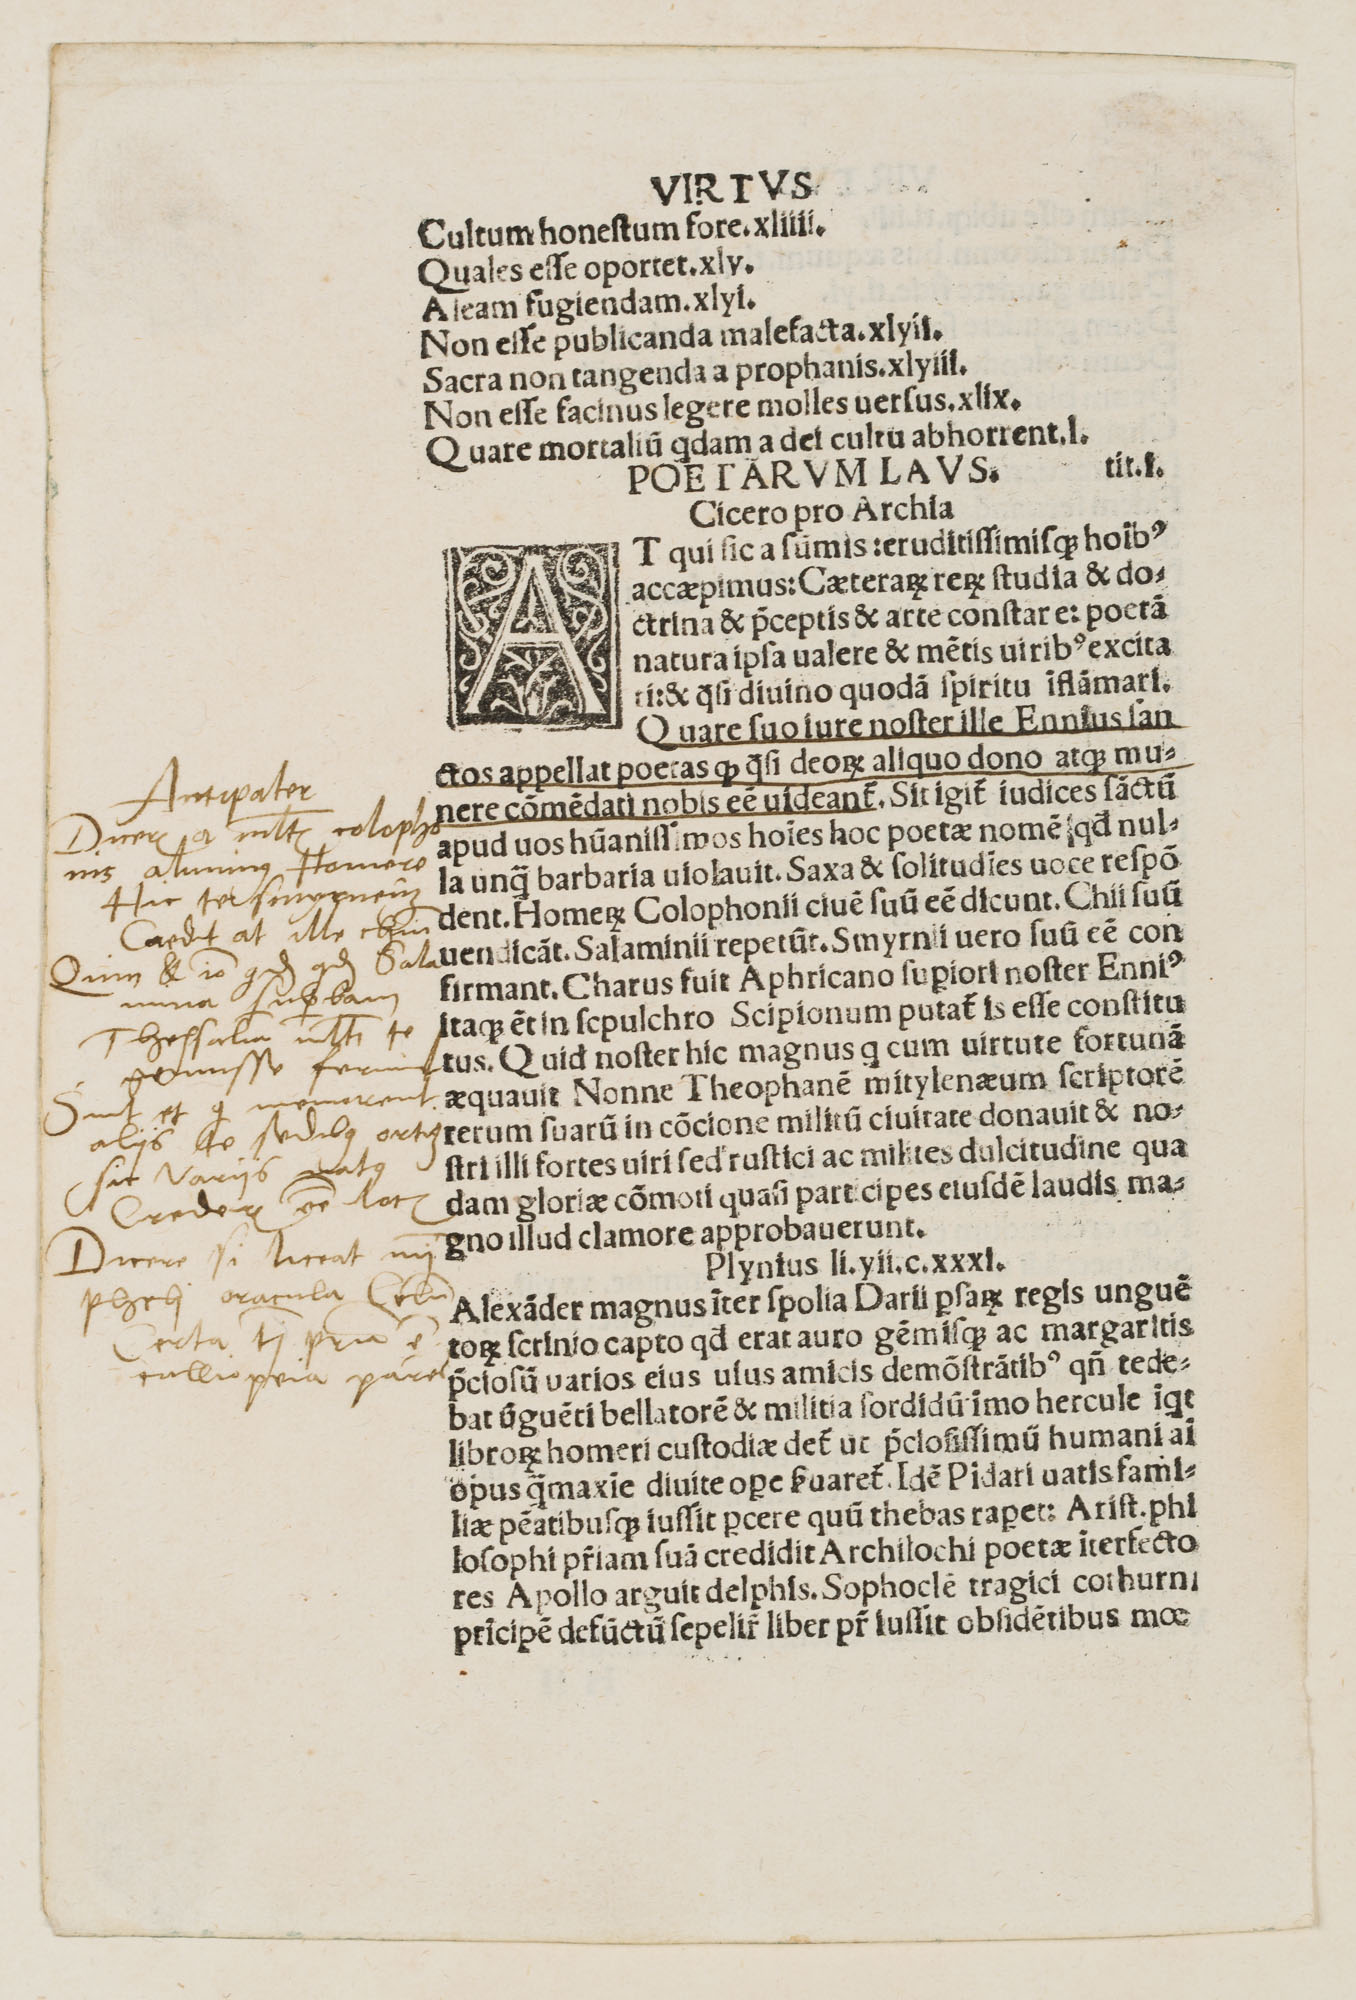 VIRTVS
Cultum honestum fore.xliiii.
Quales esse oportet.xlv.
Aleam fugiendam.xlyi.
Non esse publicanda malefacta.xlyii.
Sacra non tangenda a prophanis.xlyiii.
Non esse facinus legere molles uersus.xlix.
Quare mortaliū qdam a dei cultu abhorrent.l.
POETARVM LAVS. tit.i.
Cicero pro Archia
AT qui sic a sūmis:eruditissimisqꝫ hoib⁹
accæpimus:Cæteraꝝ reꝝ studia & do-
ctrina & p̄ceptis & arte constare: poetā
natura ipsa ualere & mētis uirib⁹ excita
ti:& q̄si diuino quodā spiritu īflāmari.
Quare suo iure noster ille Ennius san
ctos appellat poetas qꝫ q̄si deoꝝ aliquo dono atqꝫ mu-
nere cōmēdati nobis eē uideant̄. Sit igit̄ iudices sāctū
apud uos hūanissimos hoīes hoc poetæ nomē qd̄ nul-
la unq̄ barbaria uiolauit. Saxa & solitudīes uoce respō
dent. Homeꝝ Colophonii ciuē suū eē dicunt. Chii suū
uendicāt. Salaminii repetūt. Smyrnii uero suū eē con
firmant. Charus fuit Aphricano supiori noster Enni⁹
itaqꝫ ēt in sepulchro Scipionum putat̄ is esse constitu
tus. Quid noster hic magnus q cum uirtute fortunā
æquauit Nonne Theophanē mitylenæum scriptorē
rerum suarū in cōcione militū ciuitate donauit & no-
stri illi fortes uiri sed rustici ac milites dulcitudine qua
dam gloriæ cōmoti quasi participes eiusdē laudis ma-
gno illud clamore approbauerunt.
Plynius li.yii.c.xxxi.
Alexāder magnus īter spolia Darii ꝑsaꝝ regis unguē
toꝝ scrinio capto qd̄ erat auro gēmisqꝫ ac margaritis
p̄ciosū uarios eius usus amicis demōstrātib⁹ qn̄ tede-
bat ūguēti bellatorē & militia sordidū īmo hercule īqt
libroꝝ homeri custodiæ det̄ ut p̄ciosissimū humani aī
opus q̄maxīe diuite oꝑe ẜuaret̄. Idē Pīdari uatis fami-
liæ pēatibusqꝫ iussit ꝑcere quū thebas raperet: Arist.phi
losophi pr̄iam suā credidit Archilochi poetæ īterfecto
res Apollo arguit delphis. Sophoclē tragici cothurni
prīcipē defūctū sepelir̄ liber pr̄ iussit obsidētibus moe
Antipater
colopho
nis alumnus Homere
Hic te
Caedit at ille chium
Sala
mina
Thessalia te
genuisse
Sunt et q memorent
aliis te sedibꝰ ortꝰ
sic variis
Credere
Dicere si liceat mī
phebi oracula
Certa
calliopeia